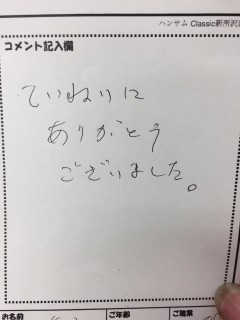 ハンサム Classic新所沢
コメント記入欄
ていねいに
ありがとう
ございました。
お名前 ご年齢 ご職業